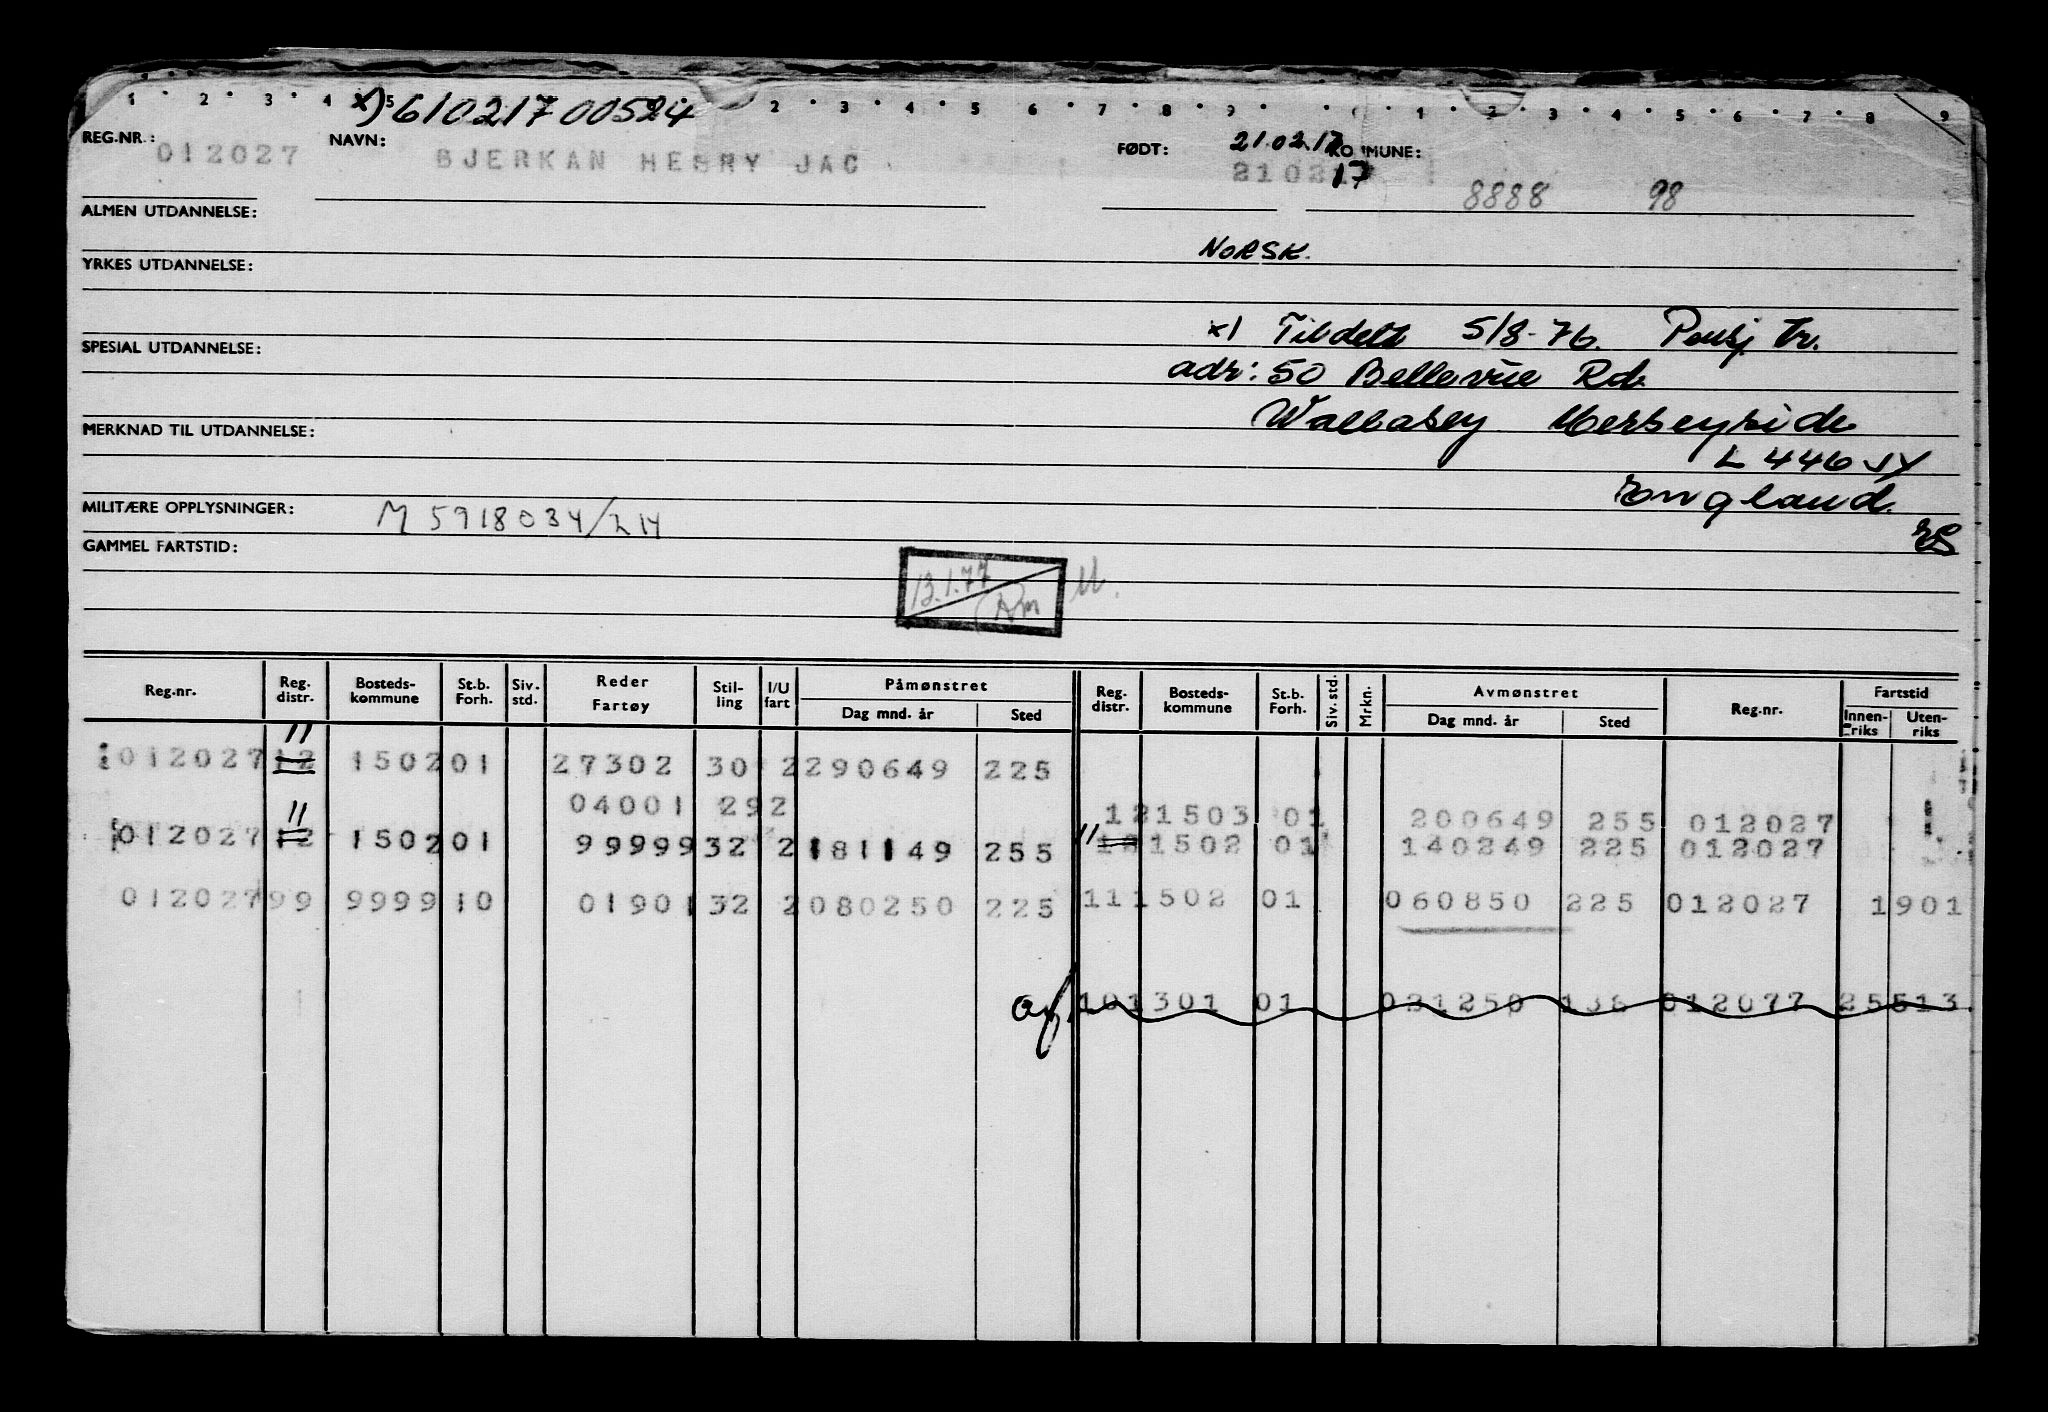 1 2 3 4 5 2 3 4 5 6 7 8 9 1 2 3 4 5 6 7 8 9
x) 61021700524
REG.NR.: 012027 NAVN: BJERKAN HENRY JAC FØDT: 21.02.17 KOMMUNE:
17
8888 98
ALMEN UTDANNELSE:
NORSK.
YRKES UTDANNELSE:
x) Tildelt 5/8-76. Pensj. tr.
SPESIAL UTDANNELSE:
adr: 50 Bellevue Rd.
Wallasey Merseyside
MERKNAD TIL UTDANNELSE:
L 44 6
England.
MILITÆRE OPPLYSNINGER: M 5918034/214
ES
GAMMEL FARTSTID:
13.1.77
Reg.nr. Reg. distr. Bosteds-kommune St.b. Forh. Siv. std. Reder Fartøy Stil-ling I/U fart Påmønstret Dag mnd. år Sted Reg. distr. Bosteds-kommune St.b. Forh. Siv. std. Mrkn. Avmønstret Dag mnd. år Sted Reg.nr. Fartstid Innen-riks Uten-riks
11
012027 12 1502 01 27302 30 2 290649 225
04001 29 2
12 1503 01 200649 255 012027
11
012027 12 1502 01 99999 32 2 181149 255
11 12 1502 01 140249 225 012027
012027 99 9999 10 01901 32 2 080250 225 11 1502 01 060850 225 012027 1901
of 10 1301 01 021250 138 012077 25513